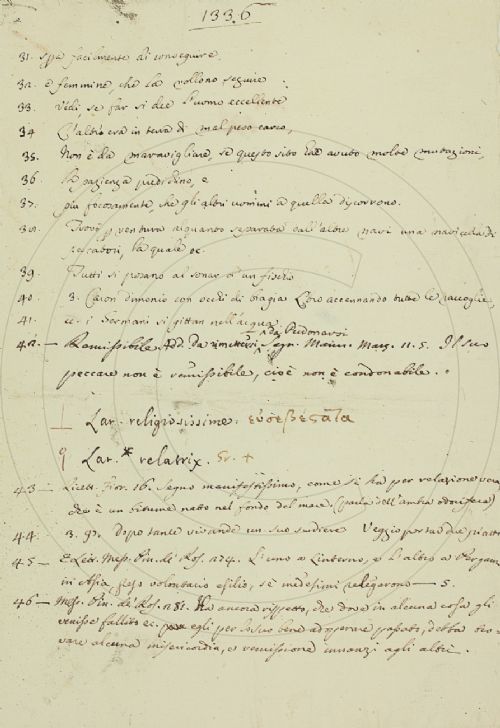 1336
31. spa facilmente di conseguire
32. e femmine che la vollono seguire
33. Vedi, se far si dee l'uomo eccellente
34 L'altro era in terra di mal peso carco,
35. Non è da maravigliare, se questo sito ha avuto molte mutazioni,
36. la pazienza perdidino, e
37. più focosamente, che gli altri uomini a quella discorrono.
38. Trovò p ventura alquanto separata dall'altre navi una navicella di
pescatori, la quale ec.
39. Tutti si posano al sonar d'un fischio
40. 3. Caron dimonio con occhi di bragia Loro accennando tutte le raccoglie,
41. ec. i Germani si gittan nell'acqua
42. — Remissibile. Add. da rimettersi, da Perdonarsi Segn. Mann. Marz. 11. 5. Il suo
peccare non è remissibile, cioè non è condonabile.
⊥ Lat. religiosissime. εὐσεβέστατα
q Lat. * relatrix. Gr. +
43 — Licett. Fior. 16. Segno manifestissimo, come si ha per relazione vera
che è un bitume nato nel fondo del mare. (parla dell'ambra odorifera)
44. 3. 97. Dopo tante vivande un suo scudiere Veggio portar due piatti
45 — Lett. Mess. Pin. de' Ros. 274. L'uno a Linterno, e l'altro a Pergamo
in Asia preso volontario esilio, se medesimi relegarono — 5.
46 — Mess. Pin. de' Ros. 281. Ha ancora rispetto, che dove in alcuna cosa gli
venisse fallito ec. egli per lo suo bene adoperare passato, debba tro-
vare alcuna misericordia, e remissione innanzi agli altri.